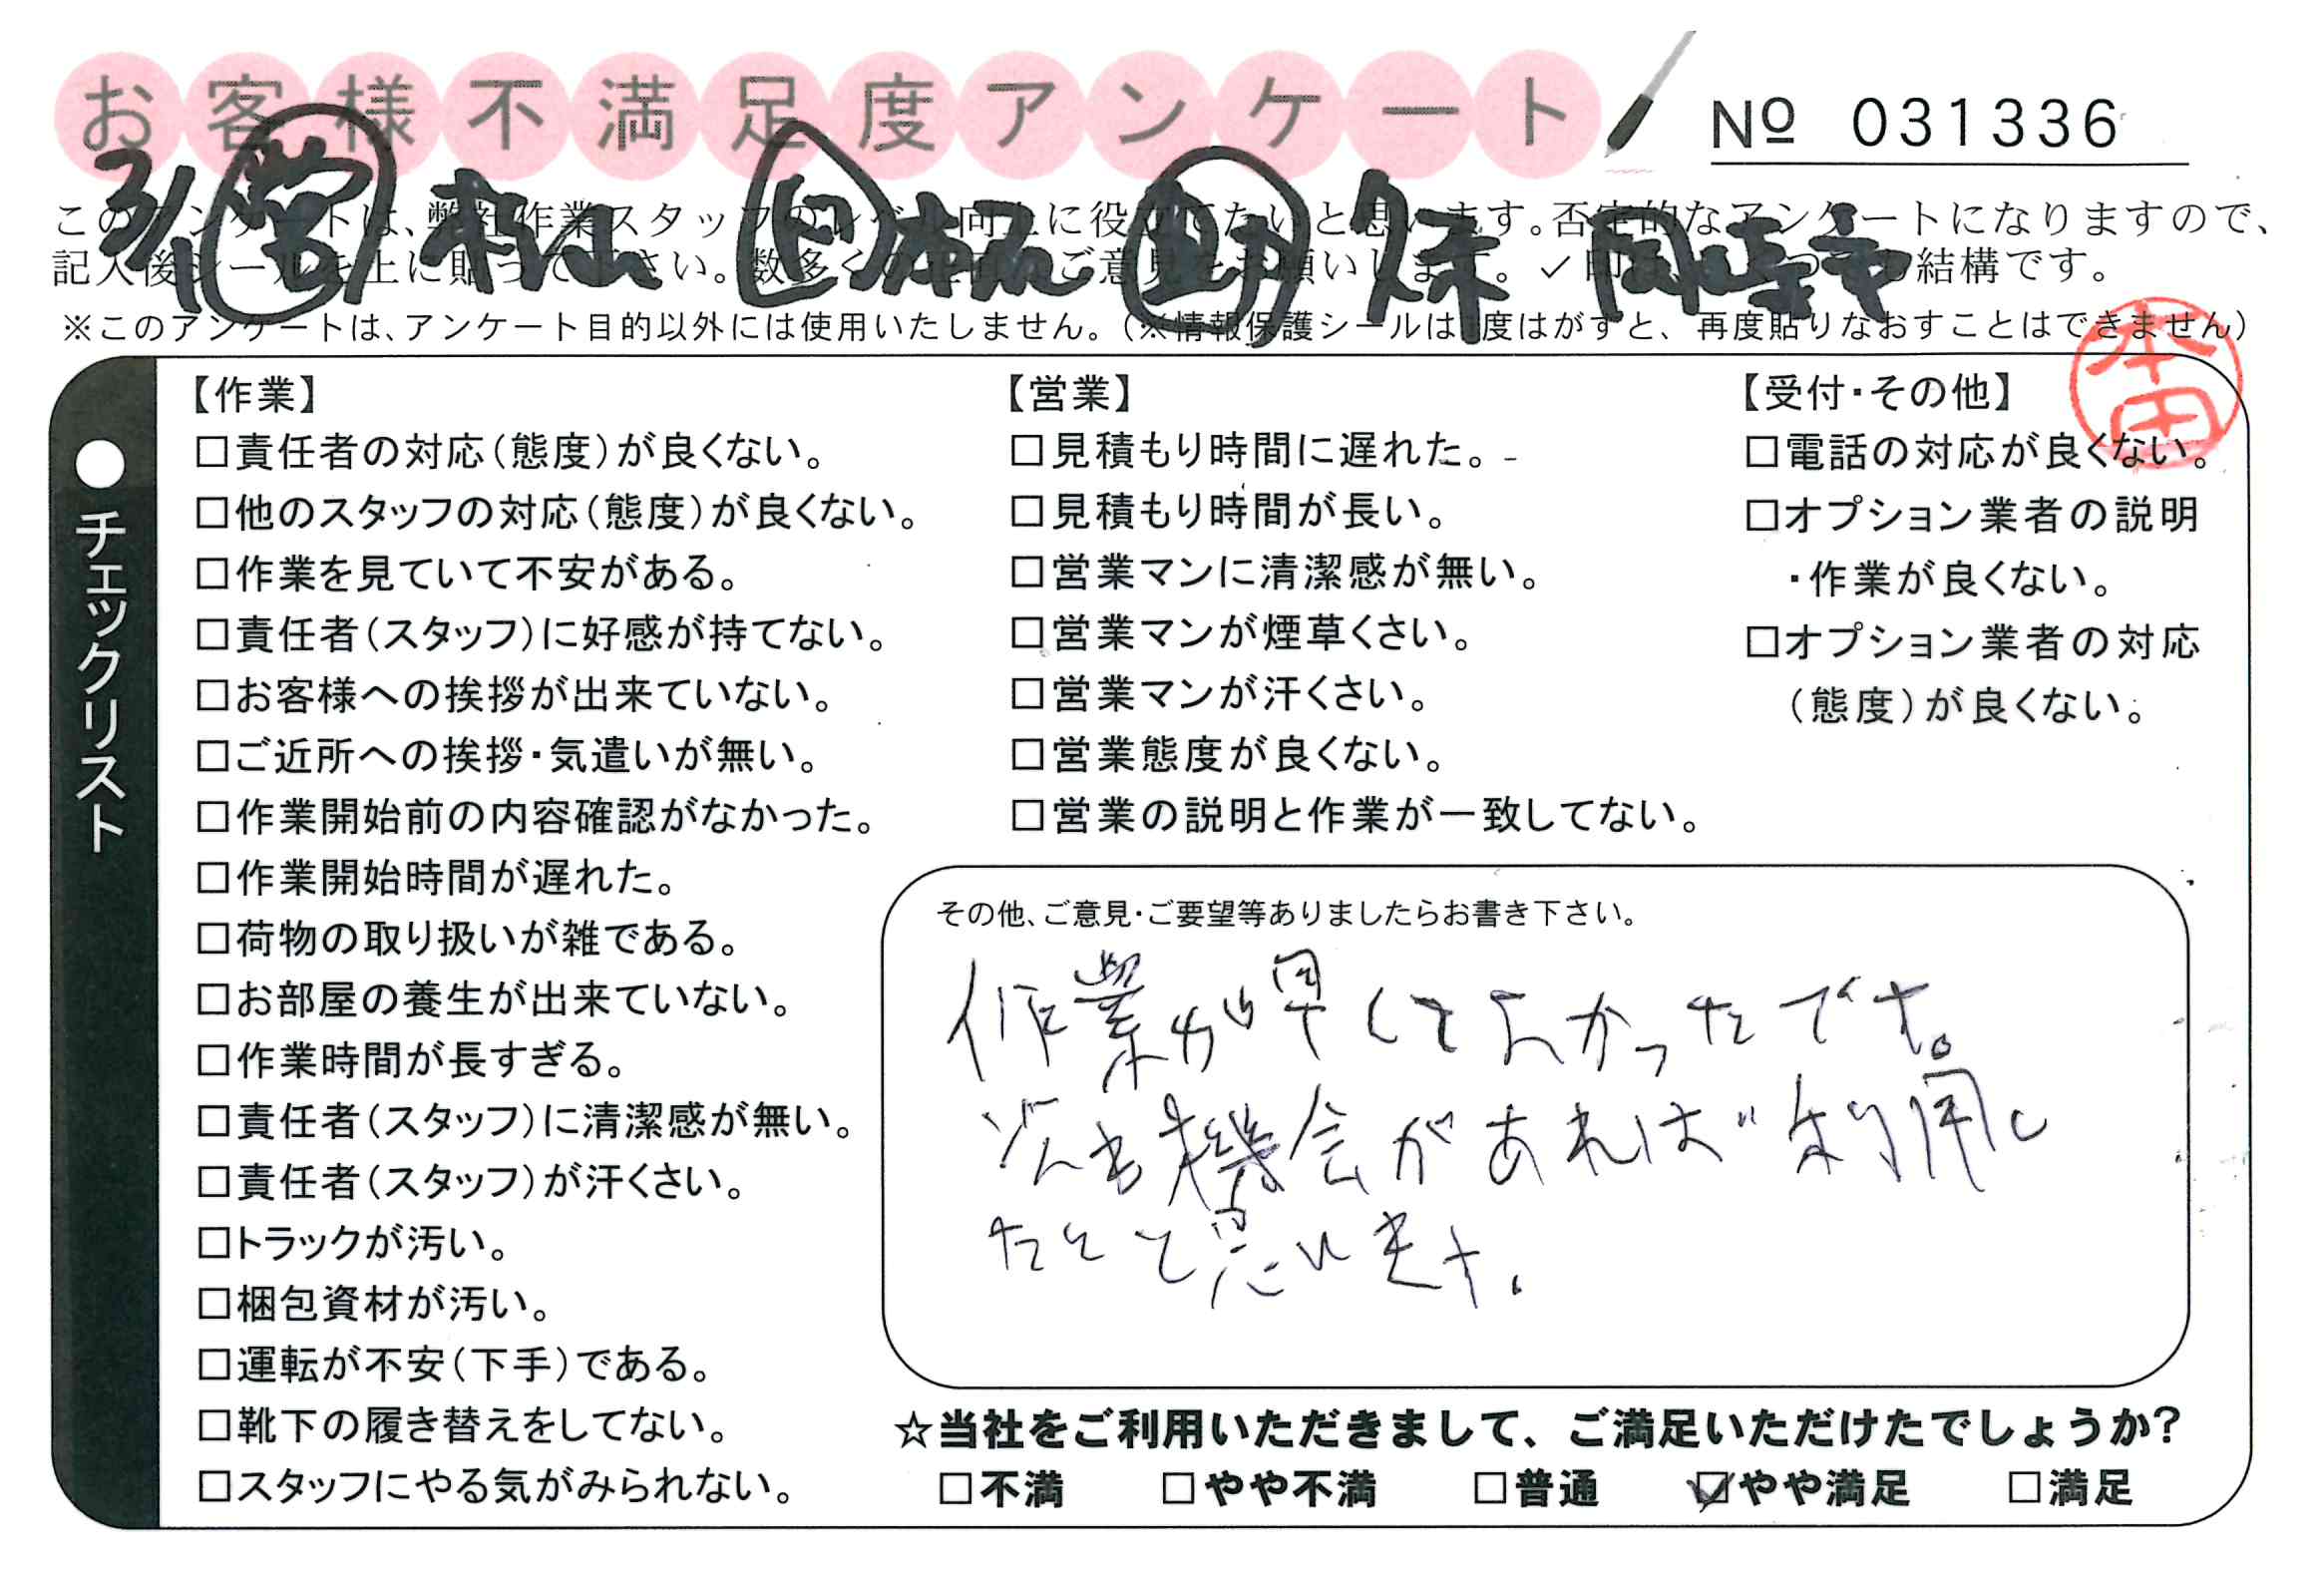 お客様不満足度アンケート
№ 031336
3/1 営 松山 助 久保 岡崎市
このアンケートは、弊社作業スタッフのレベル向上に役立てたいと思います。否定的なアンケートになりますので、
記入後シールを上に貼って下さい。数多くのご意見をお願いします。✓印 結構です。
※このアンケートは、アンケート目的以外には使用いたしません。(※情報保護シールは1度はがすと、再度貼りなおすことはできません)
本田
●チェックリスト
【作業】
□責任者の対応(態度)が良くない。
□他のスタッフの対応(態度)が良くない。
□作業を見ていて不安がある。
□責任者(スタッフ)に好感が持てない。
□お客様への挨拶が出来ていない。
□ご近所への挨拶・気遣いが無い。
□作業開始前の内容確認がなかった。
□作業開始時間が遅れた。
□荷物の取り扱いが雑である。
□お部屋の養生が出来ていない。
□作業時間が長すぎる。
□責任者(スタッフ)に清潔感が無い。
□責任者(スタッフ)が汗くさい。
□トラックが汚い。
□梱包資材が汚い。
□運転が不安(下手)である。
□靴下の履き替えをしてない。
□スタッフにやる気がみられない。
【営業】
□見積もり時間に遅れた。
□見積もり時間が長い。
□営業マンに清潔感が無い。
□営業マンが煙草くさい。
□営業マンが汗くさい。
□営業態度が良くない。
□営業の説明と作業が一致してない。
【受付・その他】
□電話の対応が良くない。
□オプション業者の説明
・作業が良くない。
□オプション業者の対応
(態度)が良くない。
その他、ご意見・ご要望等ありましたらお書き下さい。
作業が早くてよかったです。
次も機会があれば利用し
たいと思います。
☆当社をご利用いただきまして、ご満足いただけたでしょうか?
□不満 □やや不満 □普通 ☑やや満足 □満足